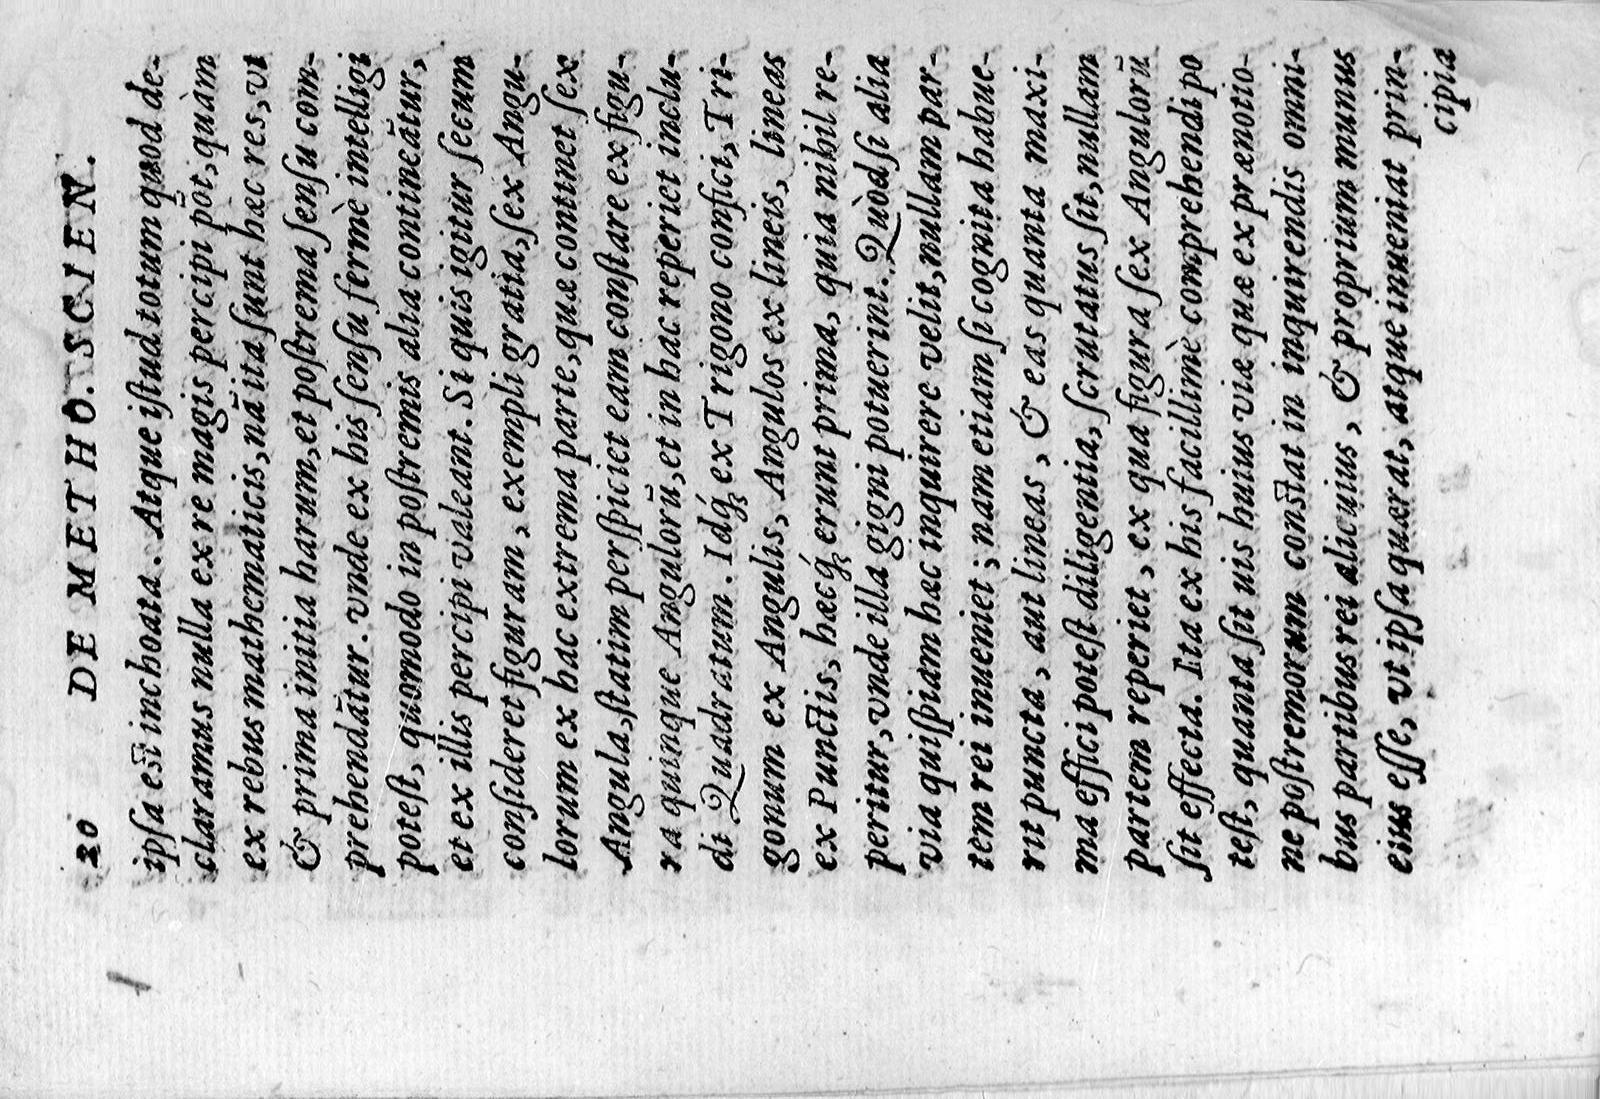 20 DE METHO. SCIEN.
ipſa eſt inchoata. Atque iſtud totum quod de-
claramus nulla ex re magis percipi pōt, quàm
ex rebus mathematicis, nā ita ſunt hæc res, vt
& prima initia harum, et poſtrema ſenſu com-
prehendātur. vnde ex his ſenſu fermè intelligi
poteſt, quomodo in poſtremis alia contineātur,
et ex illis percipi valeant. Si quis igitur ſecum
conſideret figuram, exempli gratia, ſex Angu-
lorum ex hac extrema parte, quæ continet ſex
Angula, ſtatim perſpiciet eam conſtare ex figu-
ra quinque Angulorū, et in hac reperiet inclu-
di Quadratum. Idq́; ex Trigono confici, Tri-
gonum ex Angulis, Angulos ex lineis, lineas
ex Punctis, hæcq́; erunt prima, quia nihil re-
peritur, vnde illa gigni potuerint. Quòdſi alia
via quiſpiam hæc inquirere velit, nullam par-
tem rei inueniet; nam etiam ſi cognita habue-
rit puncta, aut lineas, & eas quanta maxi-
ma effici poteſt diligentia, ſcrutatus ſit, nullam
partem reperiet, ex qua figura ſex Angulorū
ſit effecta. Ita ex his facillimè comprehendi po
teſt, quanta ſit uis huius viæ quæ ex præmotio-
ne poſtremorum conſtat in inquirendis omni-
bus partibus rei alicuius, & proprium munus
eius eſſe, vt ipſa quærat, atque inueniat prin-
cipia